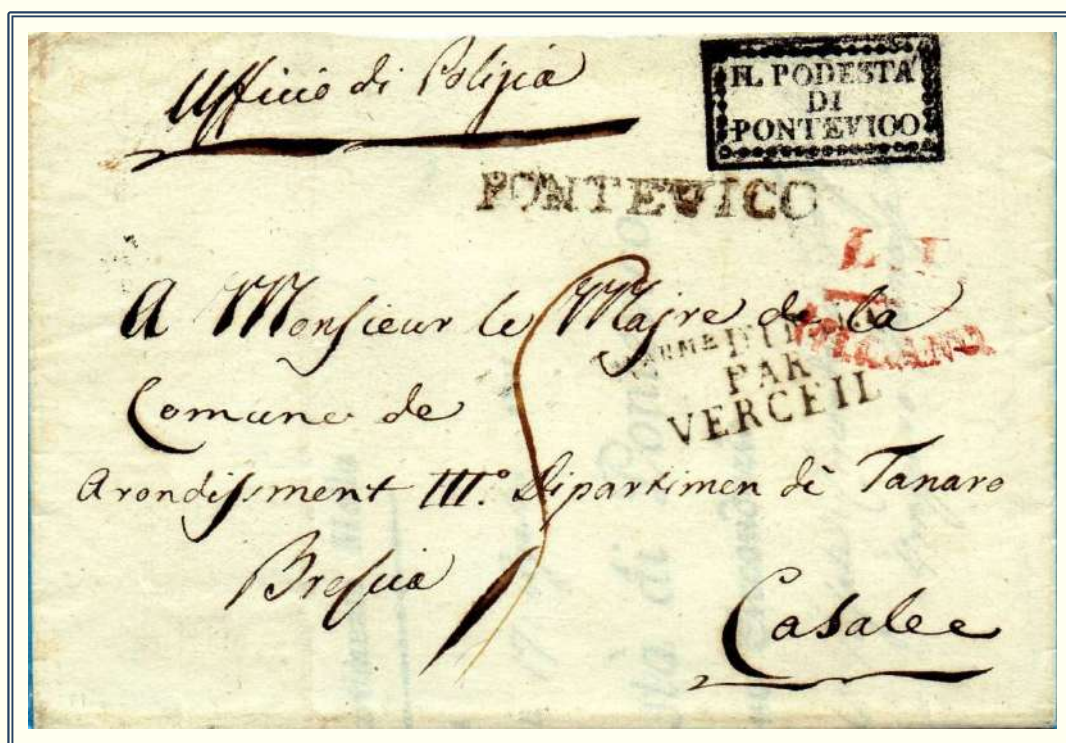 Ufficio di Polizia
IL PODESTA'
DI
PONTEVICO
PONTEVICO
L. I
MILANO
A Monsieur le Majre de la
PAR
VERCEIL
Comune de
Arondissment III.º Dipartimen di Tanaro
Brescia
Casalee